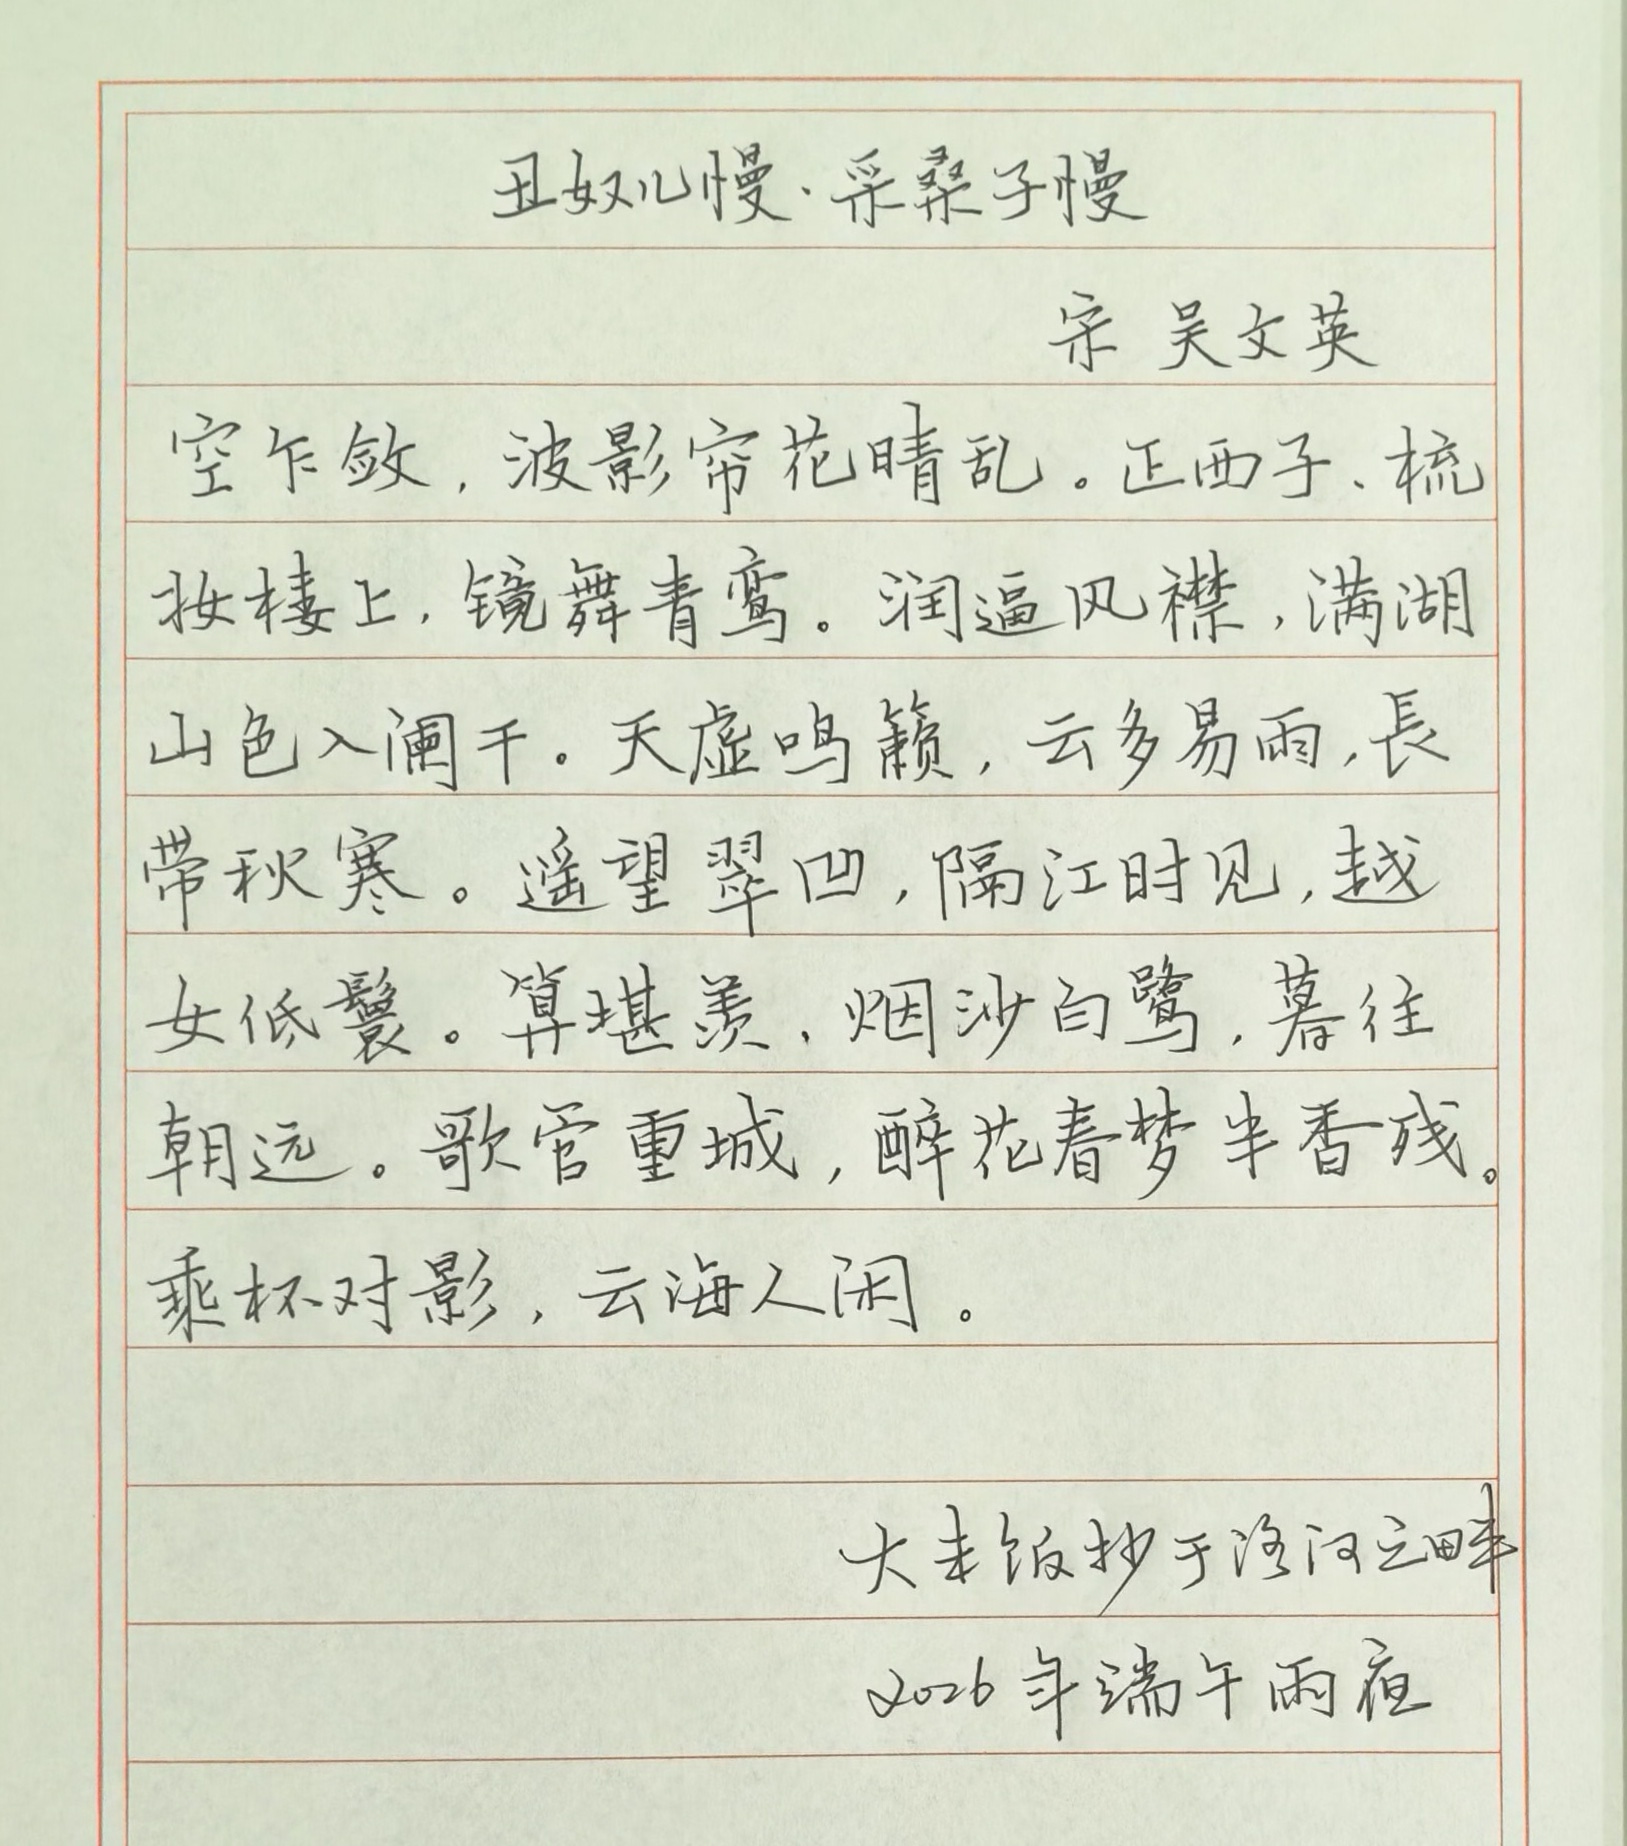 丑奴儿慢·采桑子慢
宋 吴文英
空乍敛，波影帘花晴乱。正西子、梳
妆楼上，镜舞青鸾。润逼风襟，满湖
山色入阑干。天虚鸣籁，云多易雨，長
带秋寒。遥望翠凹，隔江时见，越
女低鬟。算堪羡、烟沙白鹭，暮往
朝远。歌管重城，醉花春梦半香残。
乘杯对影，云海人闲。
大来饭抄于洛河之畔
2026年端午雨夜